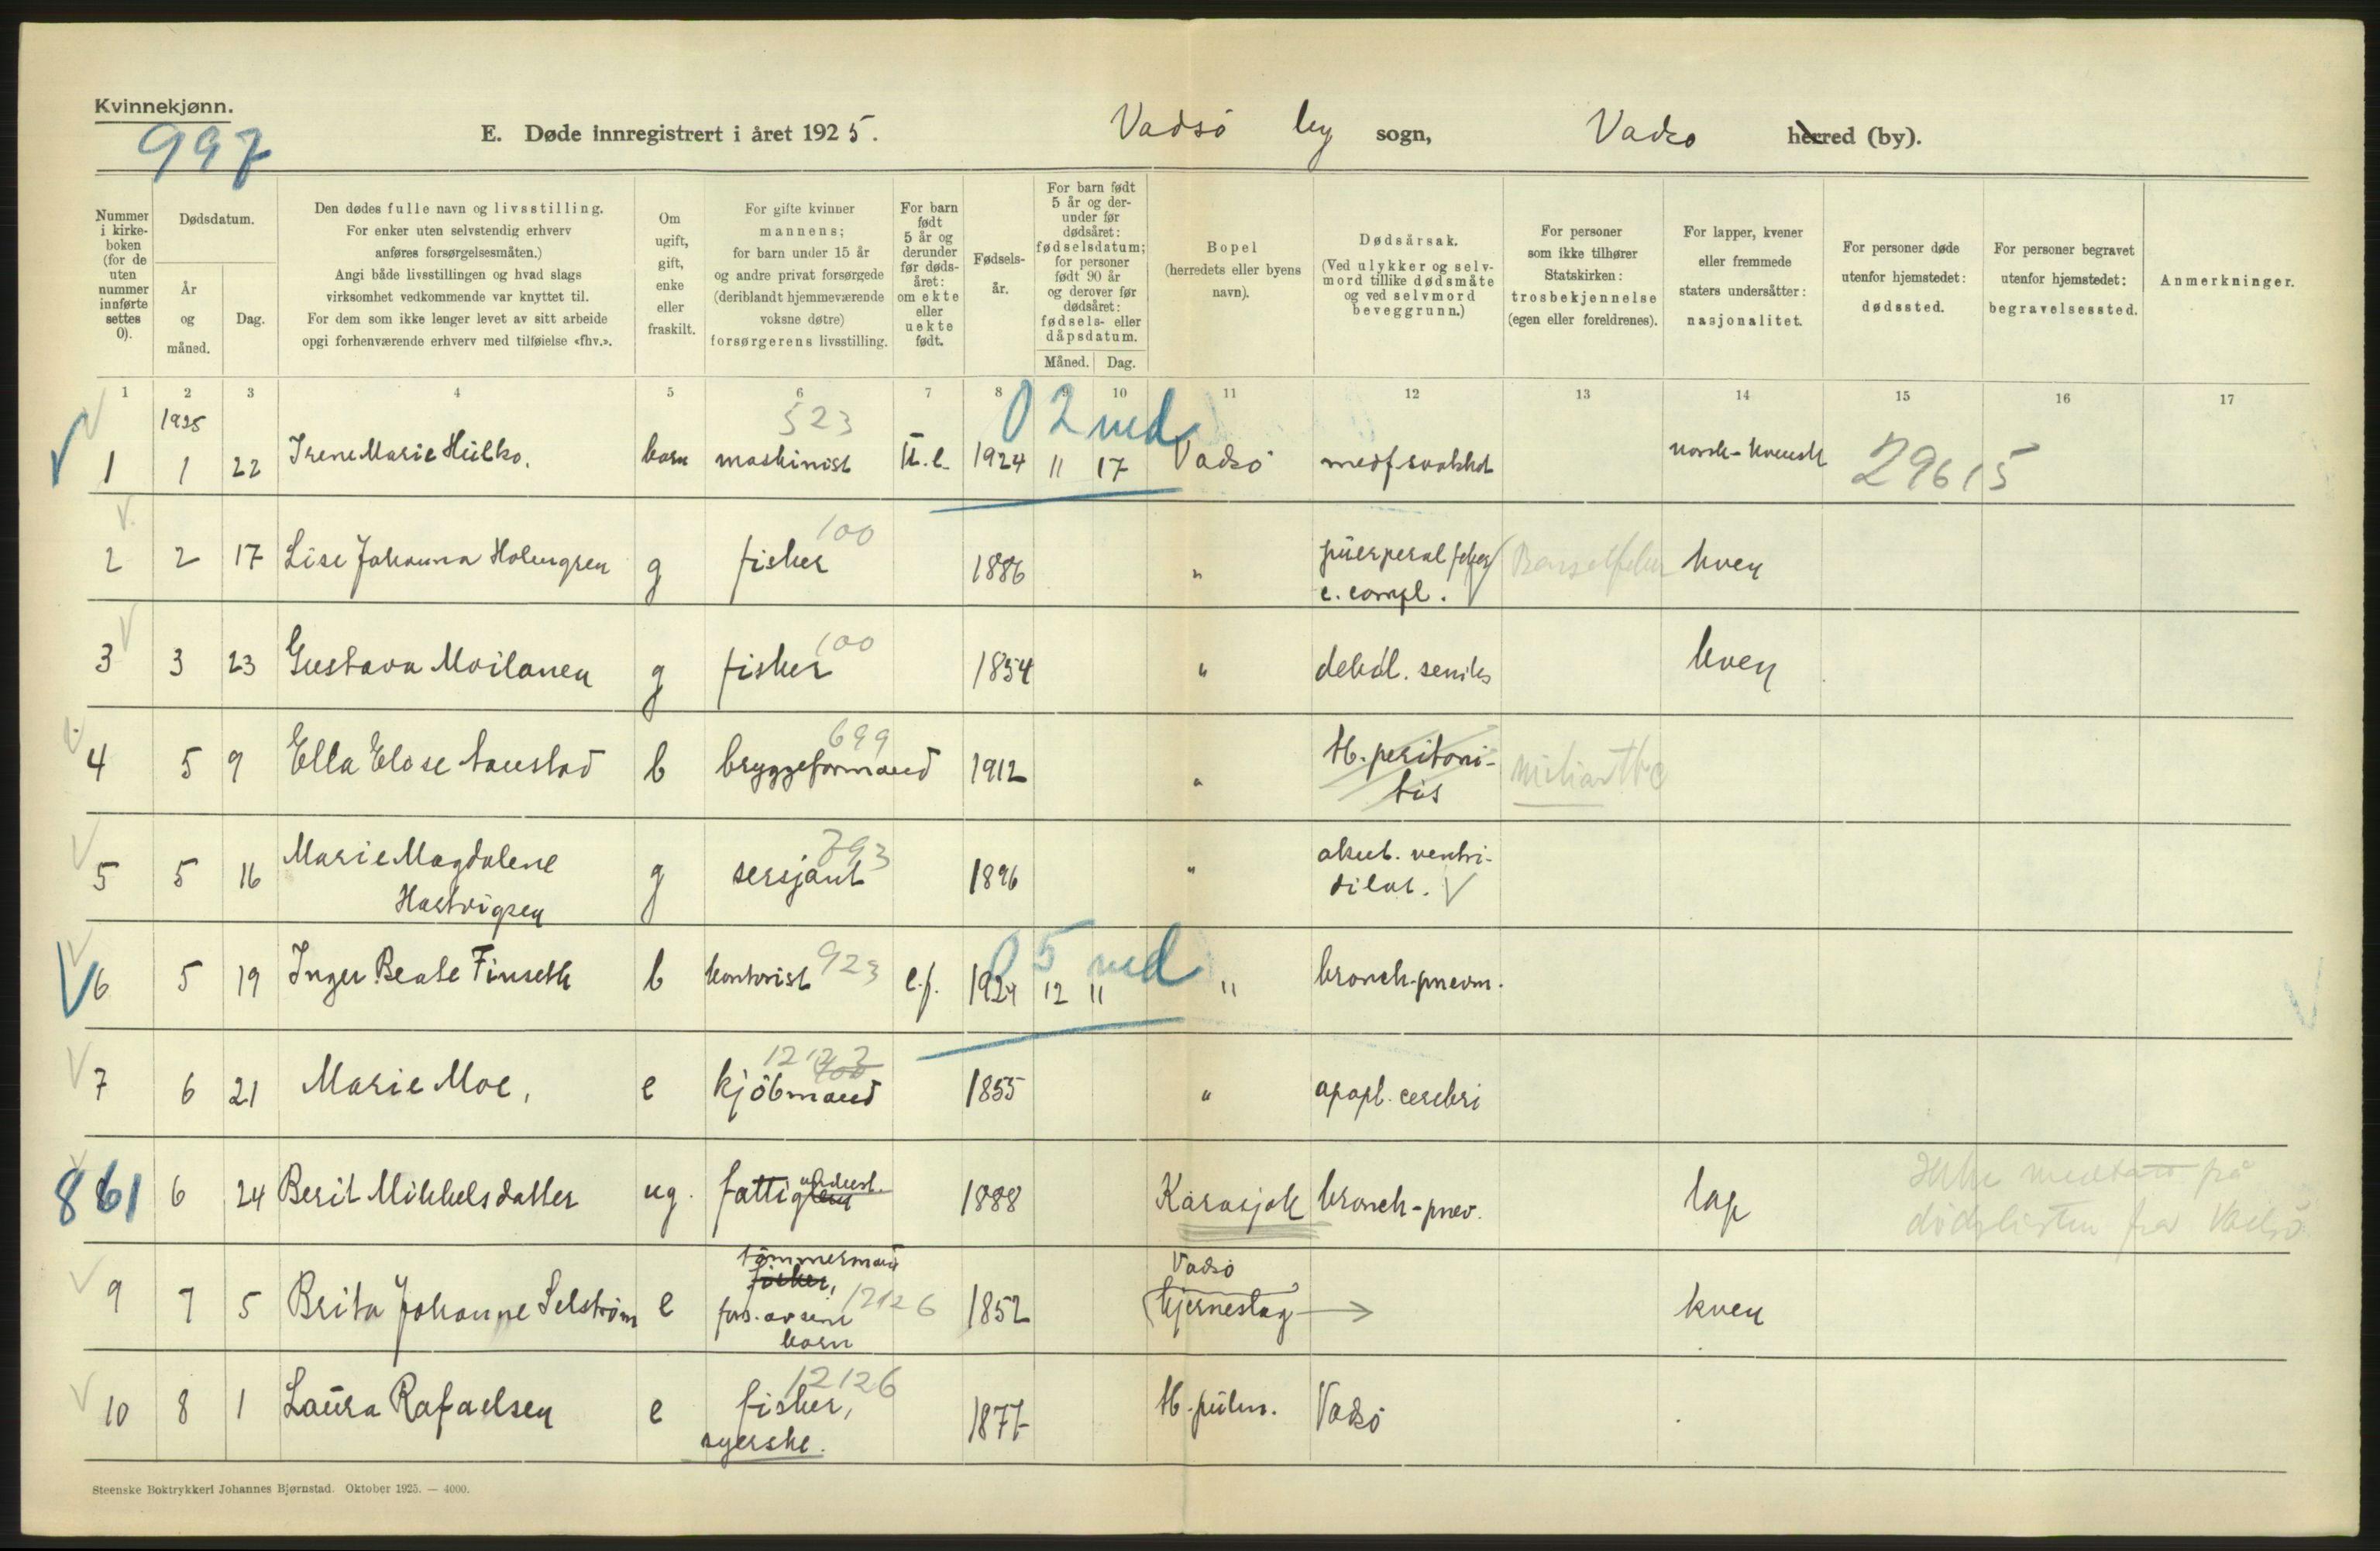 Kvinnekjønn.
997
E. Døde innregistrert i året 1925. Vadsö by sogn, Vadsö herred (by).
Nummer i kirkeboken (for de uten nummer innførte settes 0).
Dødsdatum.
År og måned.
Dag.
Den dødes fulle navn og livsstilling.
For enker uten selvstendig erhverv
anføres forsørgelsesmåten.)
Angi både livsstillingen og hvad slags
virksomhet vedkommende var knyttet til.
For dem som ikke lenger levet av sitt arbeide
opgi forhenværende erhverv med tilføielse «fhv.».
Om ugift, gift, enke eller fraskilt.
For gifte kvinner
mannens;
for barn under 15 år
og andre privat forsørgede
(deriblandt hjemmeværende
voksne døtre)
forsørgerens livsstilling.
For barn født 5 år og derunder før dødsåret: om ekte eller uekte født.
Fødselsår.
For barn født 5 år og derunder før dødsåret: fødselsdatum; for personer født 90 år og derover før dødsåret: fødsels- eller dåpsdatum.
Måned. Dag.
Bopel
(herredets eller byens
navn).
Dødsårsak.
(Ved ulykker og selvmord tillike dødsmåte og ved selvmord beveggrunn.)
For personer
som ikke tilhører
Statskirken:
trosbekjennelse
(egen eller foreldrenes).
For lapper, kvener
eller fremmede
staters undersåtter:
nasjonalitet.
For personer døde
utenfor hjemstedet:
dødssted.
For personer begravet
utenfor hjemstedet:
begravelsessted.
Anmerkninger.
1 2 3 4 5 6 7 8 9 10 11 12 13 14 15 16 17
1925 523 0 2 md
1 1 22 Irene Marie Huilko. barn maskinist U.e. 1924 11 17 Vadsö medf. svakhet norsk-kvensk 29615
100
2 2 17 Lise Johanna Holmgren g fisker 1886 " puerperal feber c. compl. Barselfeber kven
100
3 3 23 Gustava Moilanen g fisker 1854 " debil. senilis kven
699
4 5 9 Ella Elose Taustad b bryggeformand 1912 " tb. peritonitis miliær tbc
793
5 5 16 Marie Magdalene Hartvigsen g sersjant 1896 " akut. ventri-dilat.
923 0 5 md
6 5 19 Inger Beate Finseth b kontorist e.f. 1924 12 11 " bronch-pneum.
7 6 21 Marie Moe, e kjöbmand 1855 " apopl. cerebri
861 6 24 Berit Mikkelsdatter ug. fattigunderst. 1888 Karasjok bronch-pnev. lap Ikke medtatt på
dödslisten fra Vadsö
9 7 5 Brita Johanne Selström e tömmermand fisker, fors. av sine barn 12126 1852 Vadsö hjerneslag → kven
12126
10 8 1 Laura Rafaelsen e fisker, syerske. 1877 tb. pulm. Vadsö
Steenske Boktrykkeri Johannes Bjørnstad. Oktober 1925. — 4000.